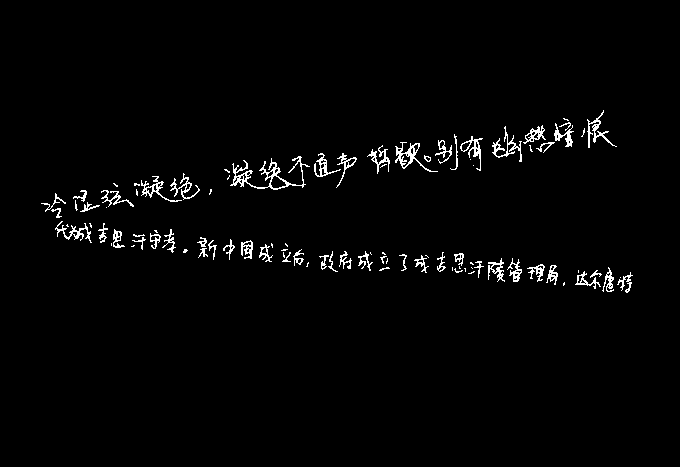 冷涩弦凝绝，凝绝不通声暂歇。别有幽愁暗恨
代为成吉思汗守孝。新中国成立后，政府成立了成吉思汗陵管理局，达尔扈特